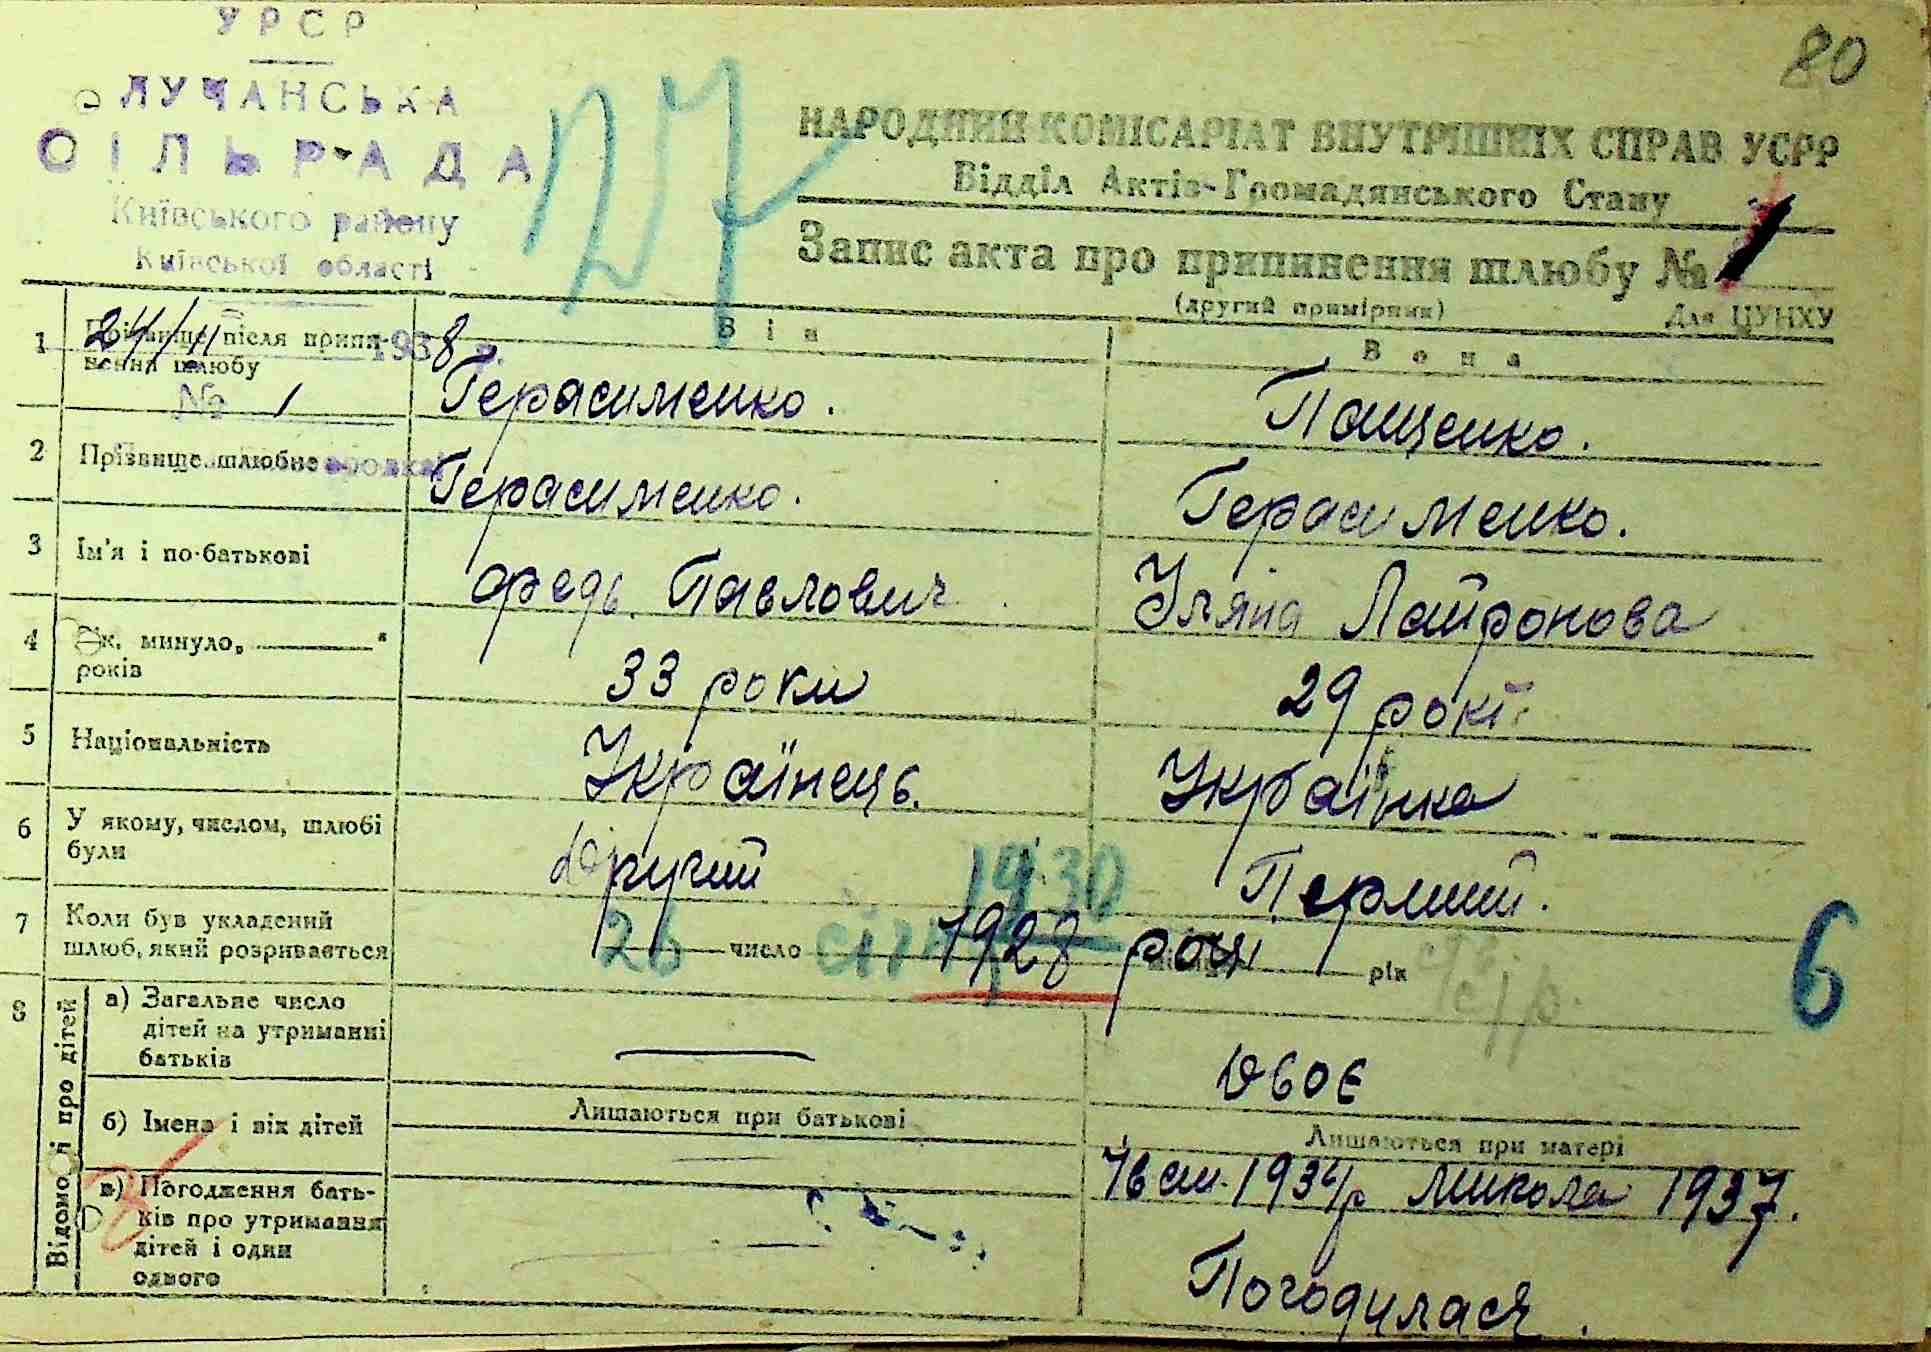 УРСР
80
ЛУЧАНСЬКА
СІЛЬРАДА
Київського району
Київської області
НАРОДНИЙ КОМІСАРІАТ ВНУТРІШНІХ СПРАВ УСРР
Відділ Актів Громадянського Стану
Запис акта про припинення шлюбу № 1
(другий примірник)
Для ЦУНХУ
24/II 1938 р.
№ 1
Він
Вона
1 Прізвище після припинення шлюбу Герасименко. Пащенко.
2 Прізвище шлюбне Герасименко. Герасименко.
3 Ім'я і по-батькові Федь. Павлович Уляна
4 Вік. минуло „ “
років 33 роки 29 рокі
5 Національність Українець. Українка
6 У якому, числом, шлюбі
були Другий Перший.
7 Коли був укладений
шлюб, який розривається 26 число 1930 1928 році рік
6
8 Відомості про дітей
а) Загальне число
дітей на утриманні
батьків — Двоє
б) Імена і вік дітей Лишаються при батькові Лишаються при матері
1934 р Микола 1937.
в) Погодження бать-
ків про утримання
дітей і один
одного Погодилася.